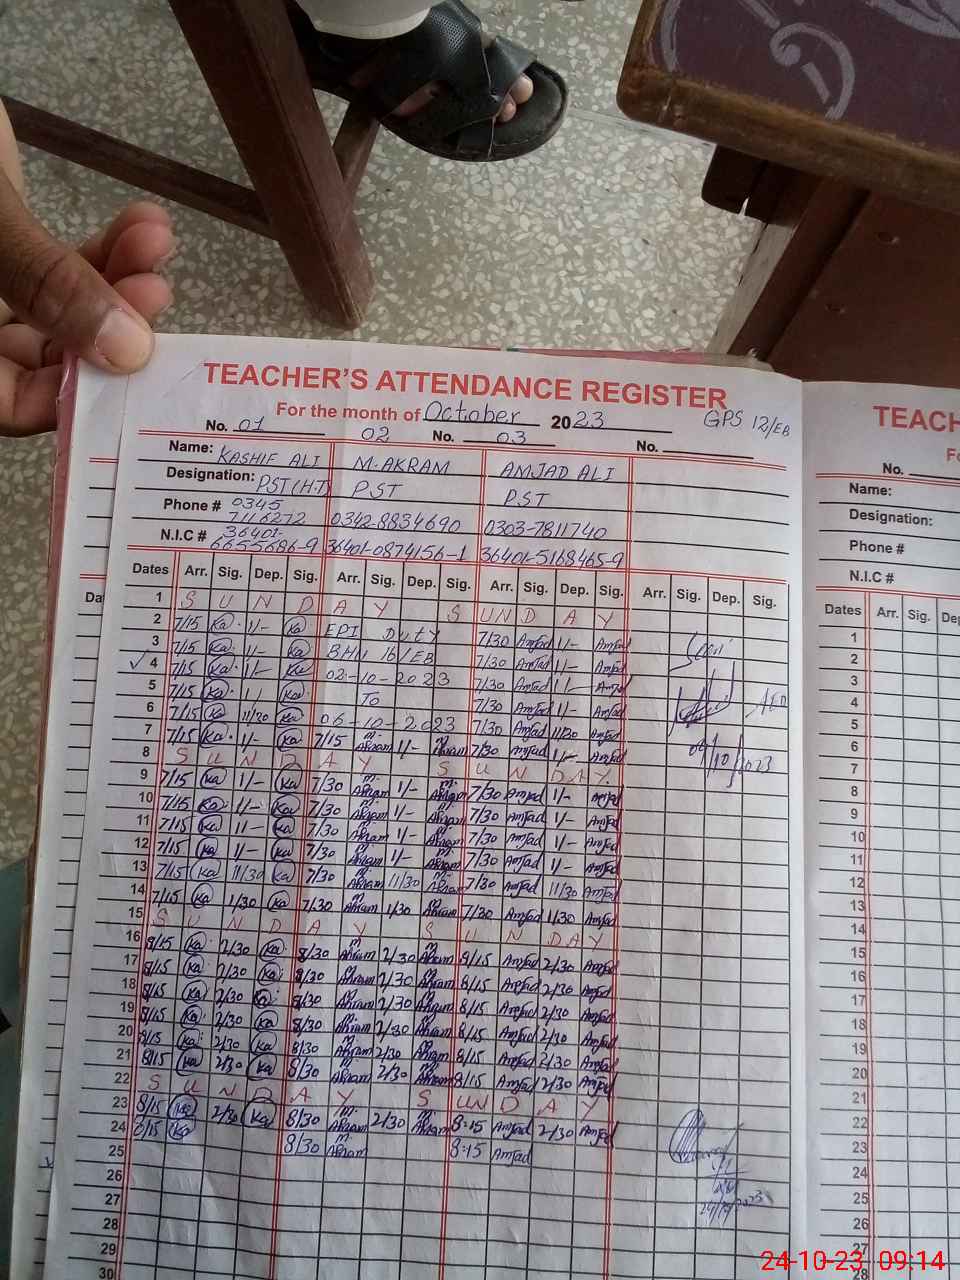 TEACHER'S ATTENDANCE REGISTER
For the month of October 2023 GPS 12/EB
No. 01 02 No. 03 No.
Name: KASHIF ALI M. AKRAM AMJAD ALI
Designation: PST (H.T) PST PST
Phone # 0345 7116272 0342-8834690 0303-7811740
N.I.C # 36401-6655686-9 36401-0874156-1 36401-5168465-9
Dates Arr. Sig. Dep. Sig. Arr. Sig. Dep. Sig. Arr. Sig. Dep. Sig. Arr. Sig. Dep. Sig.
1 S U N D A Y S U N D A Y
2 7/15 Ka 1/- Ka EPI Duty 7/30 Amjad 1/- Amjad
3 7/15 Ka 1/- Ka BHU 16/EB 7/30 Amjad 1/- Amjad
4 7/15 Ka 1/- Ka 02-10-2023 7/30 Amjad 1/- Amjad
5 7/15 Ka 1/- Ka To 7/30 Amjad 1/- Amjad
6 7/15 Ka 11/30 Ka 06-10-2023 7/30 Amjad 11/30 Amjad
7 7/15 Ka 1/- Ka 7/15 M. Akram 1/- M. Akram 7/30 Amjad 1/- Amjad
8 S U N D A Y S U N D A Y
9 7/15 Ka 1/- Ka 7/30 M. Akram 1/- M. Akram 7/30 Amjad 1/- Amjad
10 7/15 Ka 1/- Ka 7/30 M. Akram 1/- M. Akram 7/30 Amjad 1/- Amjad
11 7/15 Ka 1/- Ka 7/30 M. Akram 1/- M. Akram 7/30 Amjad 1/- Amjad
12 7/15 Ka 1/- Ka 7/30 M. Akram 1/- M. Akram 7/30 Amjad 1/- Amjad
13 7/15 Ka 11/30 Ka 7/30 M. Akram 11/30 M. Akram 7/30 Amjad 11/30 Amjad
14 7/15 Ka 1/30 Ka 7/30 M. Akram 1/30 M. Akram 7/30 Amjad 1/30 Amjad
15 S U N D A Y S U N D A Y
16 8/15 Ka 2/30 Ka 8/30 M. Akram 2/30 M. Akram 8/15 Amjad 2/30 Amjad
17 8/15 Ka 2/30 Ka 8/30 M. Akram 2/30 M. Akram 8/15 Amjad 2/30 Amjad
18 8/15 Ka 2/30 Ka 8/30 M. Akram 2/30 M. Akram 8/15 Amjad 2/30 Amjad
19 8/15 Ka 2/30 Ka 8/30 M. Akram 2/30 M. Akram 8/15 Amjad 2/30 Amjad
20 8/15 Ka 2/30 Ka 8/30 M. Akram 2/30 M. Akram 8/15 Amjad 2/30 Amjad
21 8/15 Ka 2/30 Ka 8/30 M. Akram 2/30 M. Akram 8/15 Amjad 2/30 Amjad
22 S U N D A Y S U N D A Y
23 8/15 Ka 2/30 Ka 8/30 M. Akram 2/30 M. Akram 8:15 Amjad 2/30 Amjad
24 8/15 Ka 8/30 M. Akram 8:15 Amjad
25
26
27
28
29
30
AEO
04/10/2023
24/10/2023
TEACH
Fo
No.
Name:
Designation:
Phone #
N.I.C #
Dates Arr. Sig. De
1
2
3
4
5
6
7
8
9
10
11
12
13
14
15
16
17
18
19
20
21
22
23
24
25
26
27
28
Da
24-10-23 09:14